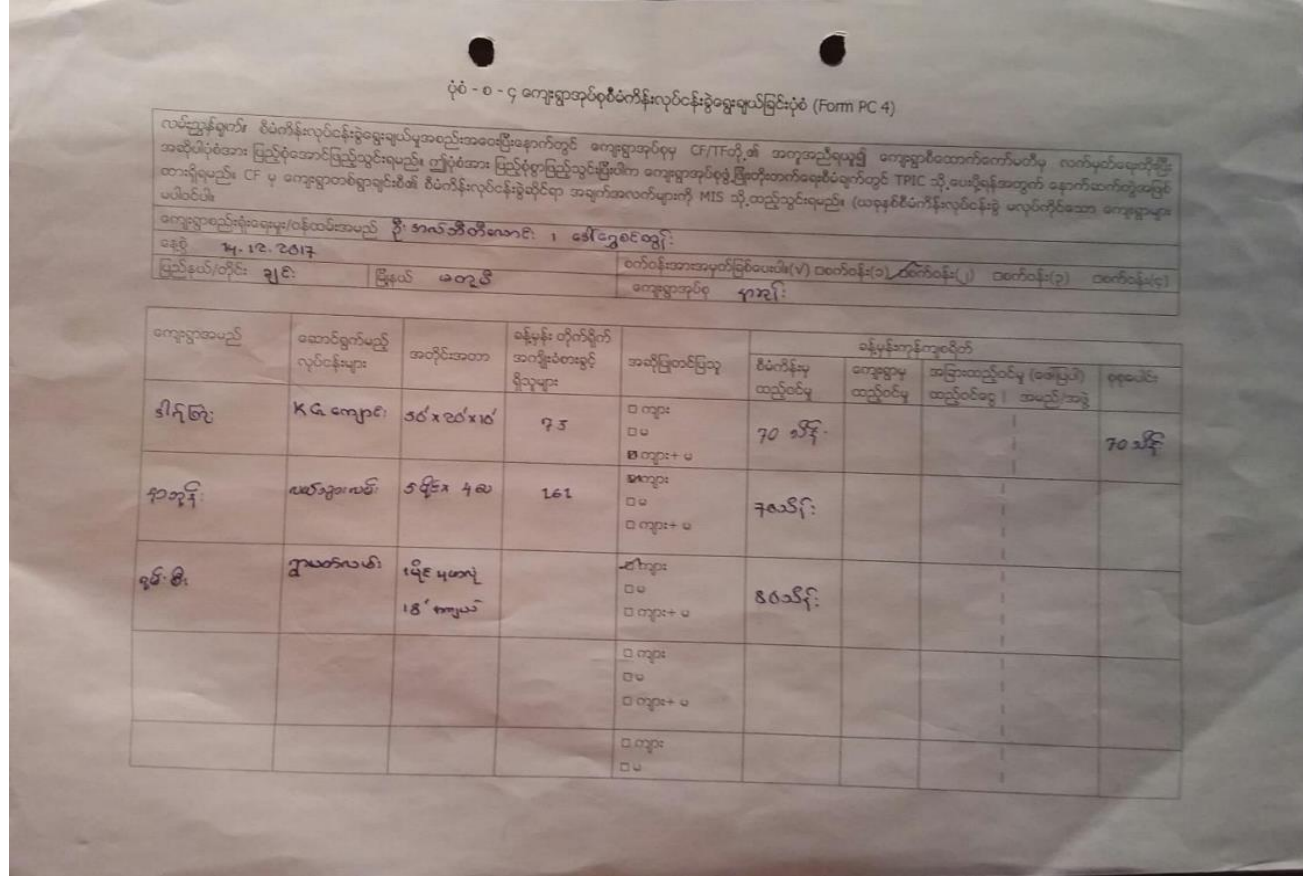 ပုံစံ - စ - ၄ ကျေးရွာအုပ်စုစီမံကိန်းလုပ်ငန်းခွဲရွေးချယ်ခြင်းပုံစံ (Form PC 4)
လမ်းညွှန်ချက်။ စီမံကိန်းလုပ်ငန်းခွဲရွေးချယ်မှုအစည်းအဝေးပြီးနောက်တွင် ကျေးရွာအုပ်စုမှ CF/TFတို့၏ အကူအညီရယူ၍ ကျေးရွာစီထောက်ကော်မတီမှ လက်မှတ်ရေးထိုးပြီး
အဆိုပါပုံစံအား ပြည့်စုံအောင်ဖြည့်သွင်းရမည်။ ဤပုံစံအား ပြည့်စုံစွာဖြည့်သွင်းပြီးပါက ကျေးရွာအုပ်စုဖွံ့ဖြိုးတိုးတက်ရေးစီမံချက်တွင် TPIC သို့ ပေးပို့ရန်အတွက် နောက်ဆက်တွဲအဖြစ်
ထားရှိရမည်။ CF မှ ကျေးရွာတစ်ရွာချင်းစီ၏ စီမံကိန်းလုပ်ငန်းခွဲဆိုင်ရာ အချက်အလက်များကို MIS သို့ထည့်သွင်းရမည်။ (ယခုနှစ်စီမံကိန်းလုပ်ငန်းခွဲ မလုပ်ကိုင်သော ကျေးရွာများ
မပါဝင်ပါ။
ကျေးရွာစည်းရုံးရေးမှူး/ဝန်ထမ်းအမည် ဦး
နေ့စွဲ 14.12.2017 စက်ဝန်းအားအမှတ်ခြစ်ပေးပါ။(√) □စက်ဝန်း(၁) □စက်ဝန်း(၂) □စက်ဝန်း(၃) □စက်ဝန်း(၄)
ပြည်နယ်/တိုင်း ချင်း မြို့နယ် မတူပီ ကျေးရွာအုပ်စု
ကျေးရွာအမည် ဆောင်ရွက်မည့် လုပ်ငန်းများ အတိုင်းအတာ ခန့်မှန်း တိုက်ရိုက် အကျိုးခံစားခွင့် ရှိသူများ အဆိုပြုတင်ပြသူ ခန့်မှန်းကုန်ကျစရိတ်
စီမံကိန်းမှ ထည့်ဝင်မှု ကျေးရွာမှ ထည့်ဝင်မှု အခြားထည့်ဝင်မှု (ဖော်ပြပါ) ထည့်ဝင်ငွေ အမည်/အဖွဲ့ စုစုပေါင်း
KG ကျောင်း 50'x20'x10' 75 □ ကျား
□ မ
□ ကျား+ မ 70 သိန်း 70 သိန်း
လယ်သွားလမ်း 5 မိုင် x 4 ပေ 161 □ ကျား
□ မ
□ ကျား+ မ 70သိန်း
ရွာပတ်လမ်း 1မိုင်
18' အကျယ် □ ကျား
□ မ
□ ကျား+ မ 80သိန်း
□ ကျား
□ မ
□ ကျား+ မ
□ ကျား
□ မ